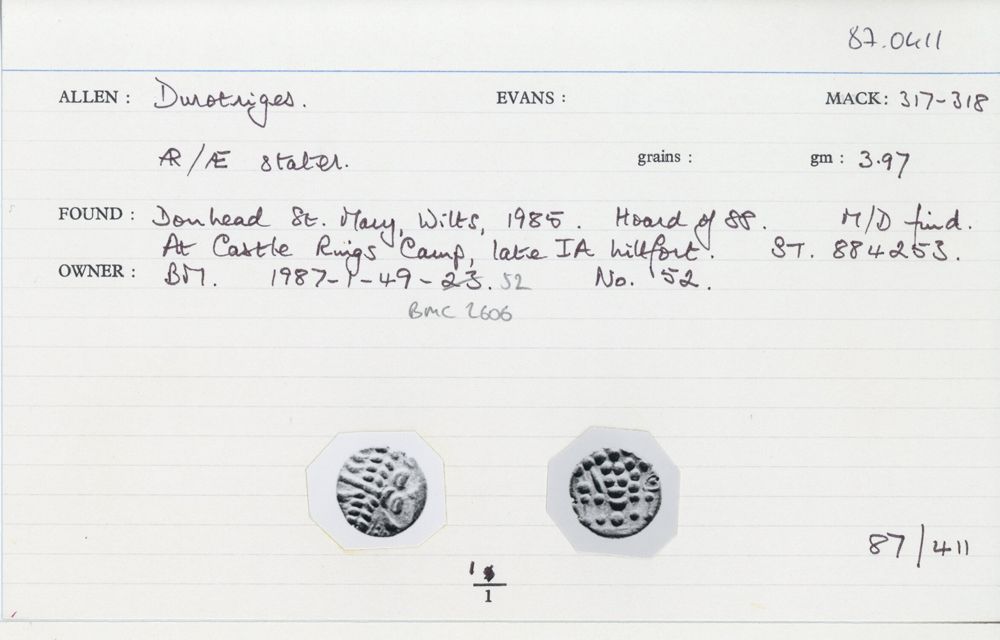 87.0411
ALLEN : Durotriges. EVANS : MACK: 317-318
Æ/Æ stater. grains : gm : 3.97
FOUND : Donhead St. Mary, Wilts, 1985. Hoard of 88. M/D find.
At Castle Rings Camp, late IA hillfort. ST. 884253.
OWNER : BM. 1987-1-49-23. 52 No. 52.
BMC 2606
87/411
1
1